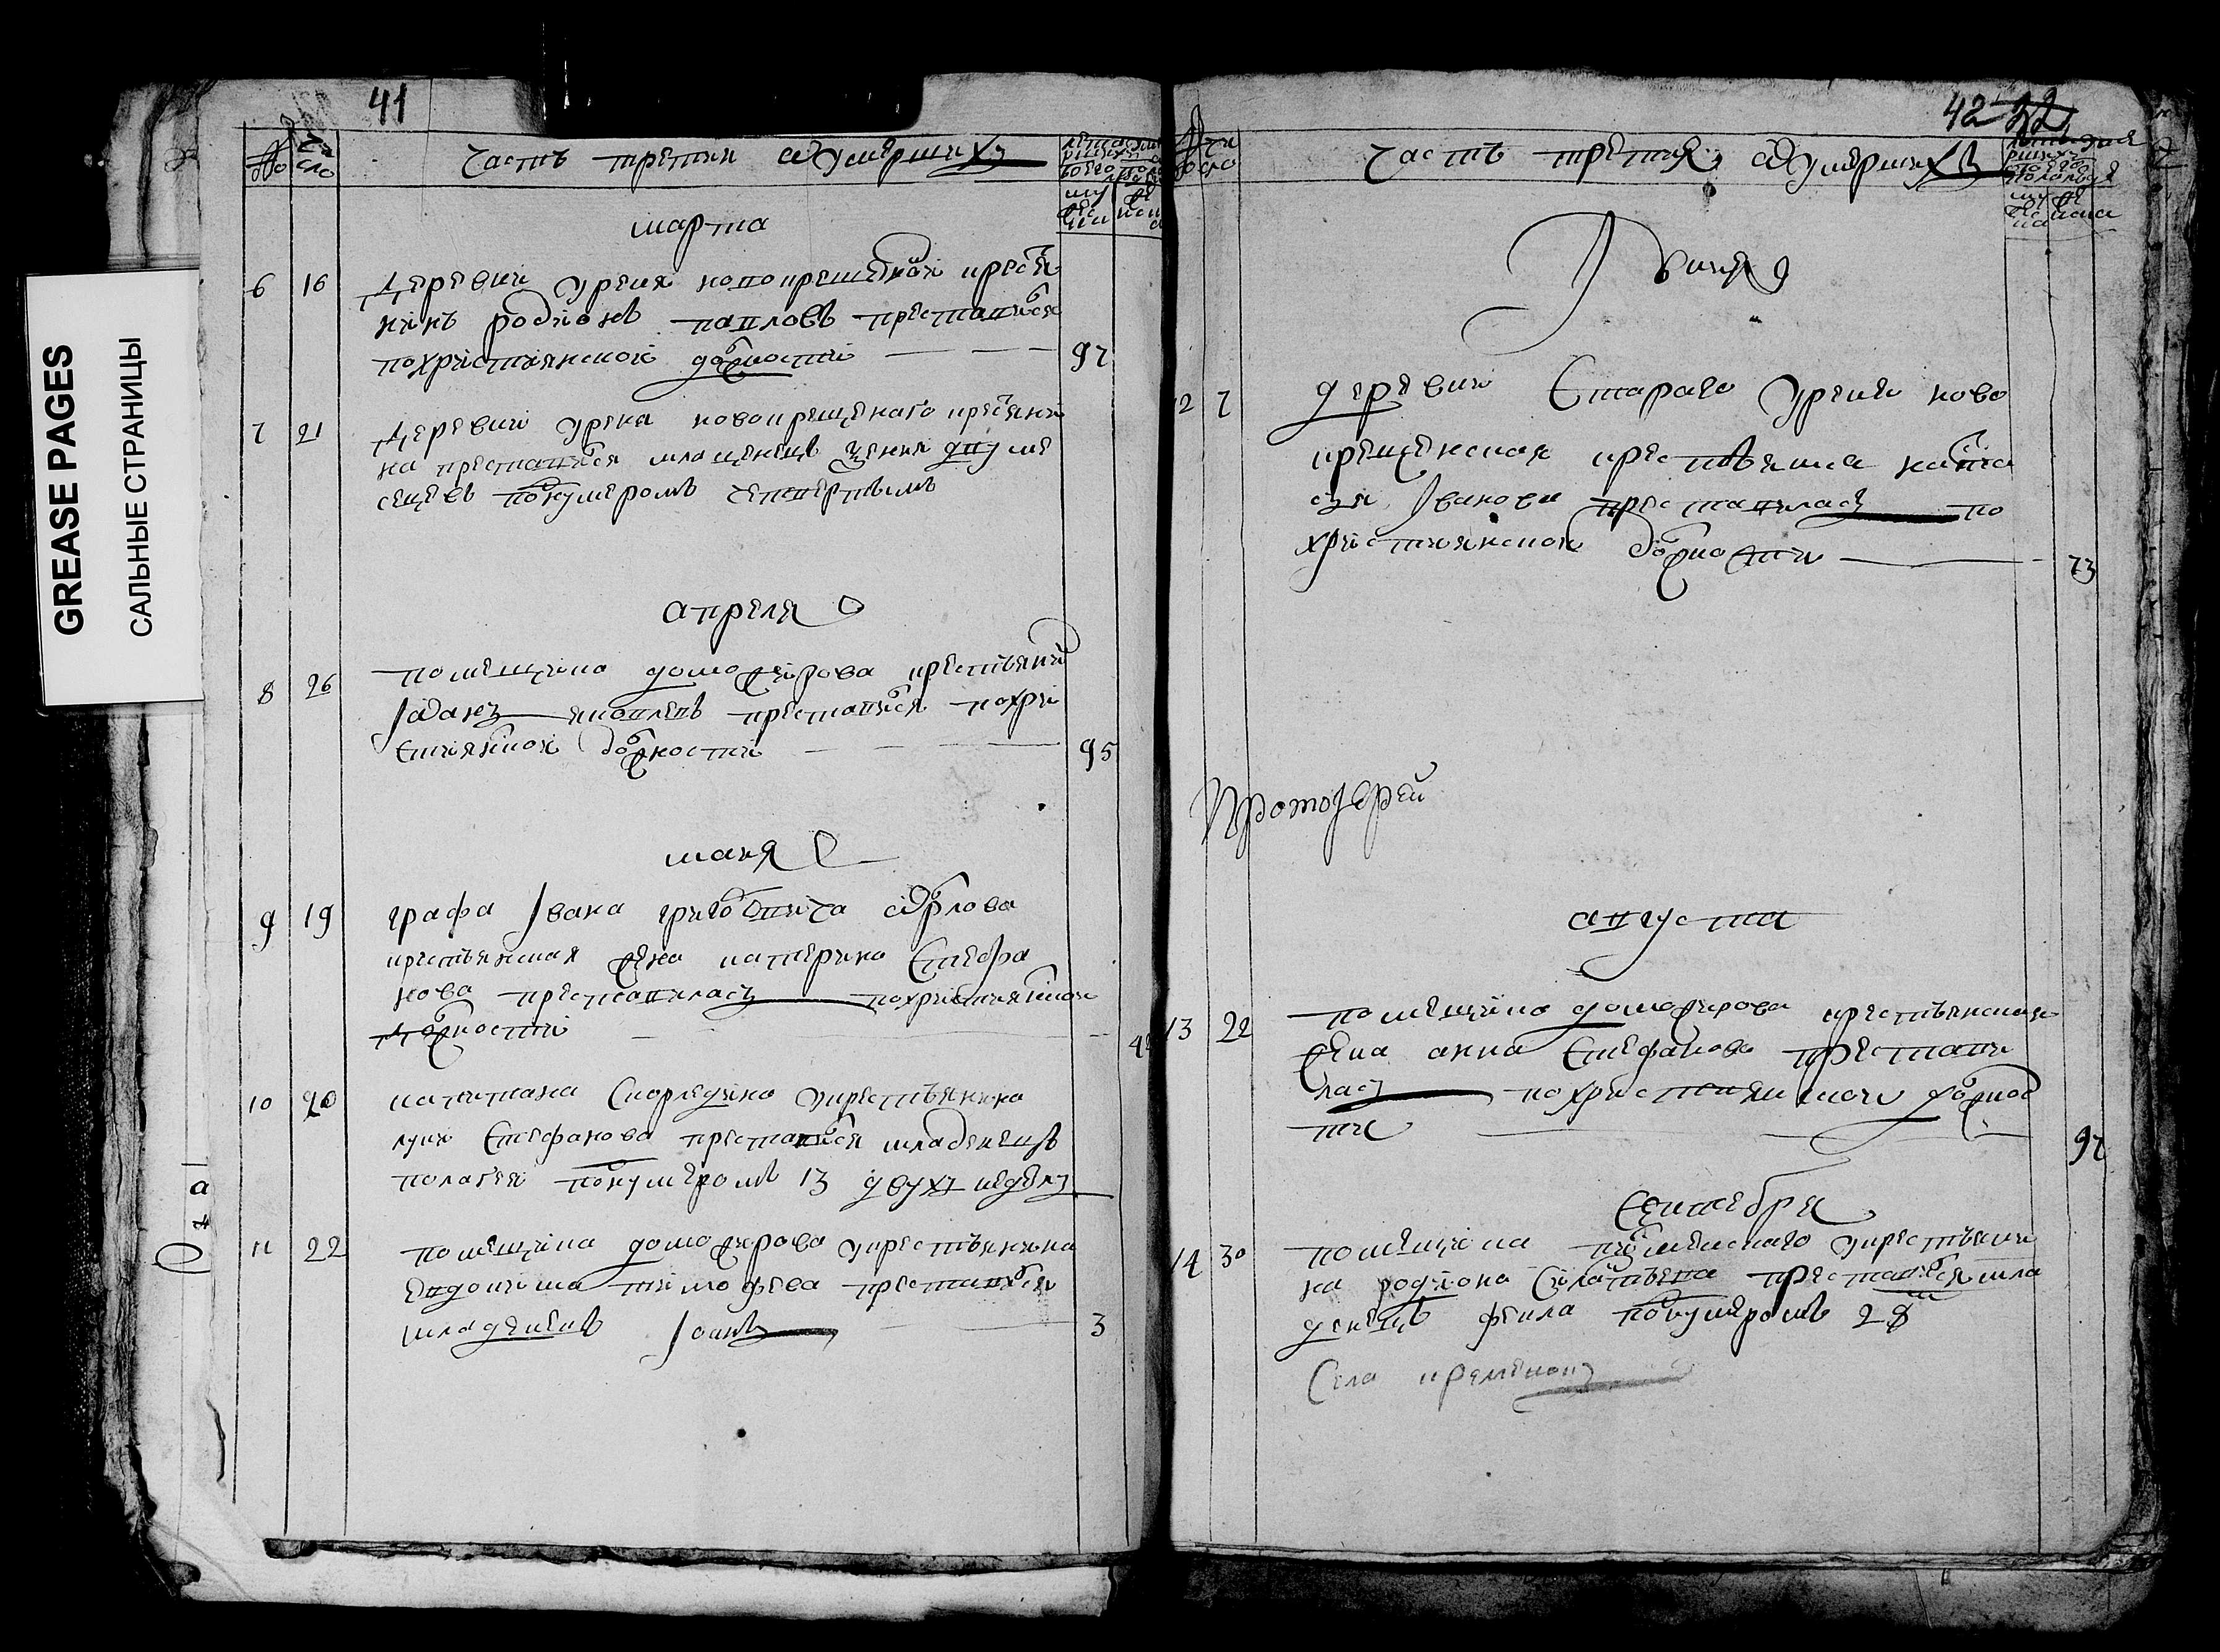 GREASE PAGES
САЛЬНЫЕ СТРАНИЦЫ
41
№ число
Часть третия ѡ умершихъ
марта
6 16 деревни Уреня новокрещеной кресья
нинъ родионъ павловъ преставися
по християнской должности 97
7 21 деревни Урена новокрещенаго кресьяни
на преставися младенецъ двуме
сецевъ по нумеромъ четвертымъ
апреля
8 26 помещика доможирова крестьянин
яковлевъ преставися по хри
стиянской должности 95
маия
9 19 графа Ивана григорьевича ѡрлова
крестьянская жена катерина Стефа
нова преставилась по християнской
должности
10 20 капитана Скорядина у крестьянина
луки Стефанова преставися младенецъ
полагея по нумеромъ 13 двухъ недель
11 22 помещика доможирова у крестьянина
Евдокима тимофева преставися
младенецъ Иоанъ 3
42 22
Часть третия ѡ умершихъ
Июния
12 7 деревни Стараго Уреня ново
крещенская крестьянка наста
сья Иванова преставилась по
християнской должности 73
Протоиерей
августа
13 22 помещика доможирова крестьянская
жена анна Стефанова престави
лась по християнской должнос
ти 97
Сентебря
14 30 помещика у крестьяни
на родиона преставися мла
денецъ фекла по нумеромъ 28
Села кременокъ